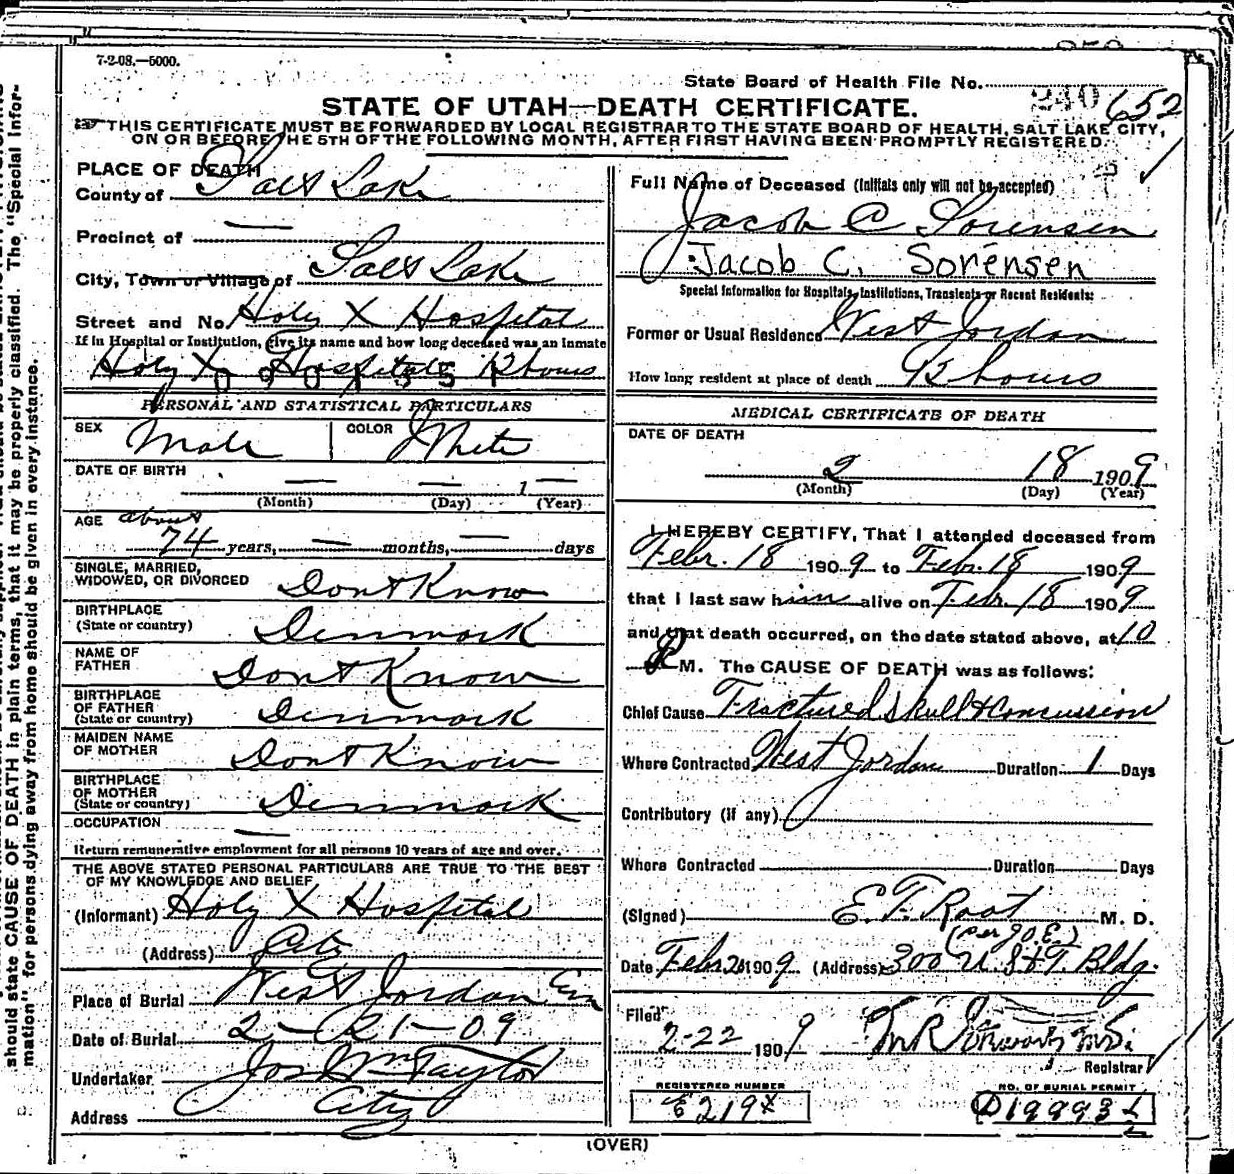 7-2-08.—5000.
State Board of Health File No. 240 652
STATE OF UTAH—DEATH CERTIFICATE.
THIS CERTIFICATE MUST BE FORWARDED BY LOCAL REGISTRAR TO THE STATE BOARD OF HEALTH, SALT LAKE CITY,
ON OR BEFORE THE 5TH OF THE FOLLOWING MONTH, AFTER FIRST HAVING BEEN PROMPTLY REGISTERED.
PLACE OF DEATH
County of Salt Lake
Precinct of —
City, Town or Village of Salt Lake
Street and No. Holy X Hospital
If in Hospital or Institution, give its name and how long deceased was an inmate
Holy X Hospital 12 hours
0901351
PERSONAL AND STATISTICAL PARTICULARS
SEX Male COLOR White
DATE OF BIRTH
— — 1 —
(Month) (Day) (Year)
AGE about
74 years, — months, — days
SINGLE, MARRIED,
WIDOWED, OR DIVORCED Dont Know
BIRTHPLACE
(State or country) Denmark
NAME OF
FATHER Dont Know
BIRTHPLACE
OF FATHER
(State or country) Denmark
MAIDEN NAME
OF MOTHER Dont Know
BIRTHPLACE
OF MOTHER
(State or country) Denmark
OCCUPATION —
Return remunerative employment for all persons 10 years of age and over.
THE ABOVE STATED PERSONAL PARTICULARS ARE TRUE TO THE BEST
OF MY KNOWLEDGE AND BELIEF
(Informant) Holy X Hospital
(Address) City
Place of Burial West Jordan Cem
Date of Burial 2-21-09
Undertaker Jos Wm Taylor
Address City
Full Name of Deceased (Initials only will not be accepted)
Jacob C Sorensen
Jacob C. Sorensen
Special Information for Hospitals, Institutions, Transients or Recent Residents:
Former or Usual Residence West Jordan
How long resident at place of death 12 hours
MEDICAL CERTIFICATE OF DEATH
DATE OF DEATH
2 18 1909
(Month) (Day) (Year)
I HEREBY CERTIFY, That I attended deceased from
Febr. 18 1909 to Febr. 18 1909
that I last saw him alive on Febr. 18 1909
and that death occurred, on the date stated above, at 10
P M. The CAUSE OF DEATH was as follows:
Chief Cause Fractured Skull & Concussion
Where Contracted West Jordan Duration 1 Days
Contributory (if any)
Where Contracted Duration Days
(Signed) E. F. Root M. D.
(per J.O.E.)
Date Febr 20 1909 (Address) 300 U. S & T. Bldg.
Filed
2-22 1909
Registrar
REGISTERED NUMBER
E219X
NO. OF BURIAL PERMIT
D19993
(OVER)
should state CAUSE OF DEATH in plain terms, that it may be properly classified. The "Special Infor-
mation" for persons dying away from home should be given in every instance.